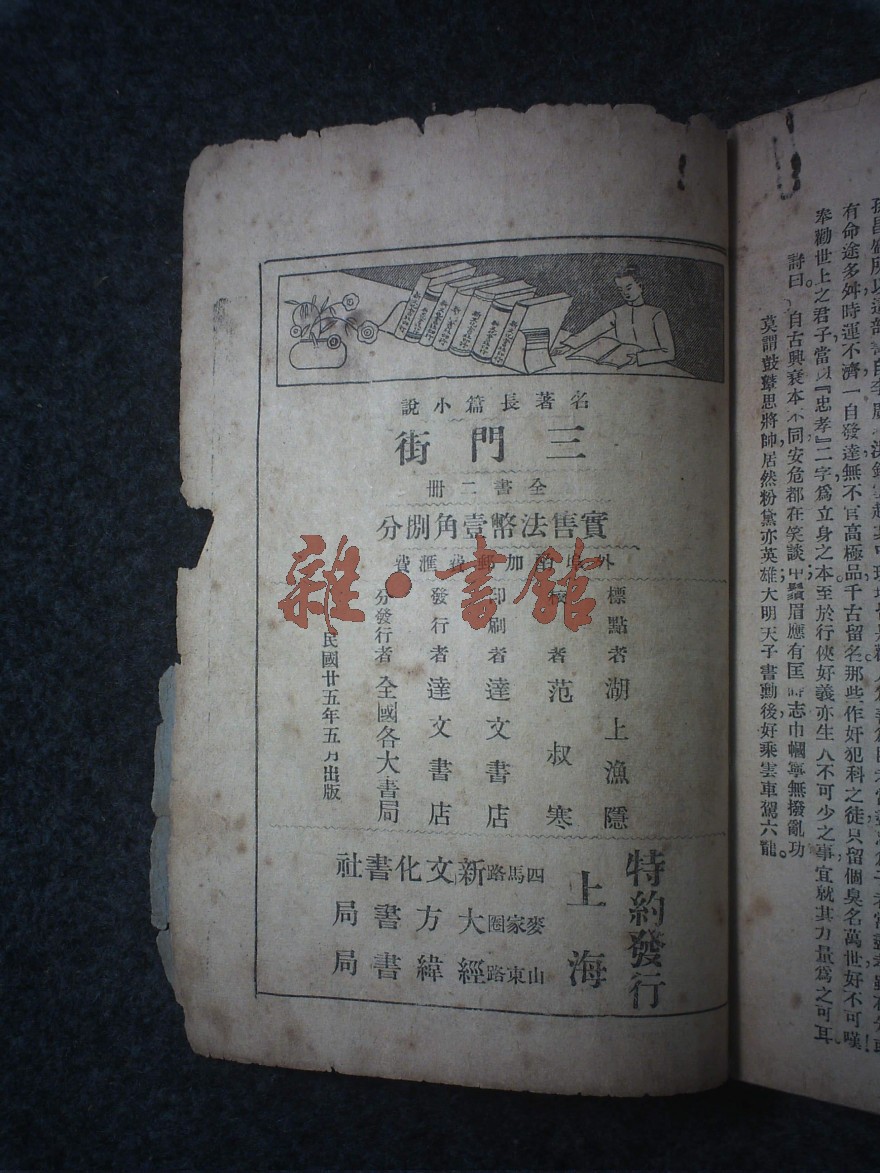 名著長篇小說
三門街
全書二冊
實售法幣壹角捌分
外埠酌加郵費滙費
標點者 湖上漁隱
者 范叔寒
印刷者 達文書店
發行者 達文書店
分發行者 全國各大書局
民國廿五年五月出版
特約發行
上海
四馬路 新文化書社
麥家圈 大方書局
山東路 經緯書局
雜·書館
有命途多舛時運不濟一自發達無不官高極品千古留名那些作奸犯科之徒只留個臭名萬世好不可嘆!
奉勸世上之君子當以『忠孝』二字爲立身之本至於行俠好義亦生人不可少之事宜就其力量爲之可耳
詩曰 自古興衰本不同安危都在笑談中鬚眉應有匡時志巾幗寧無撥亂功
莫謂鼓鼙思將帥居然粉黛亦英雄大明天子書勳後好乘雲車駕六龍。